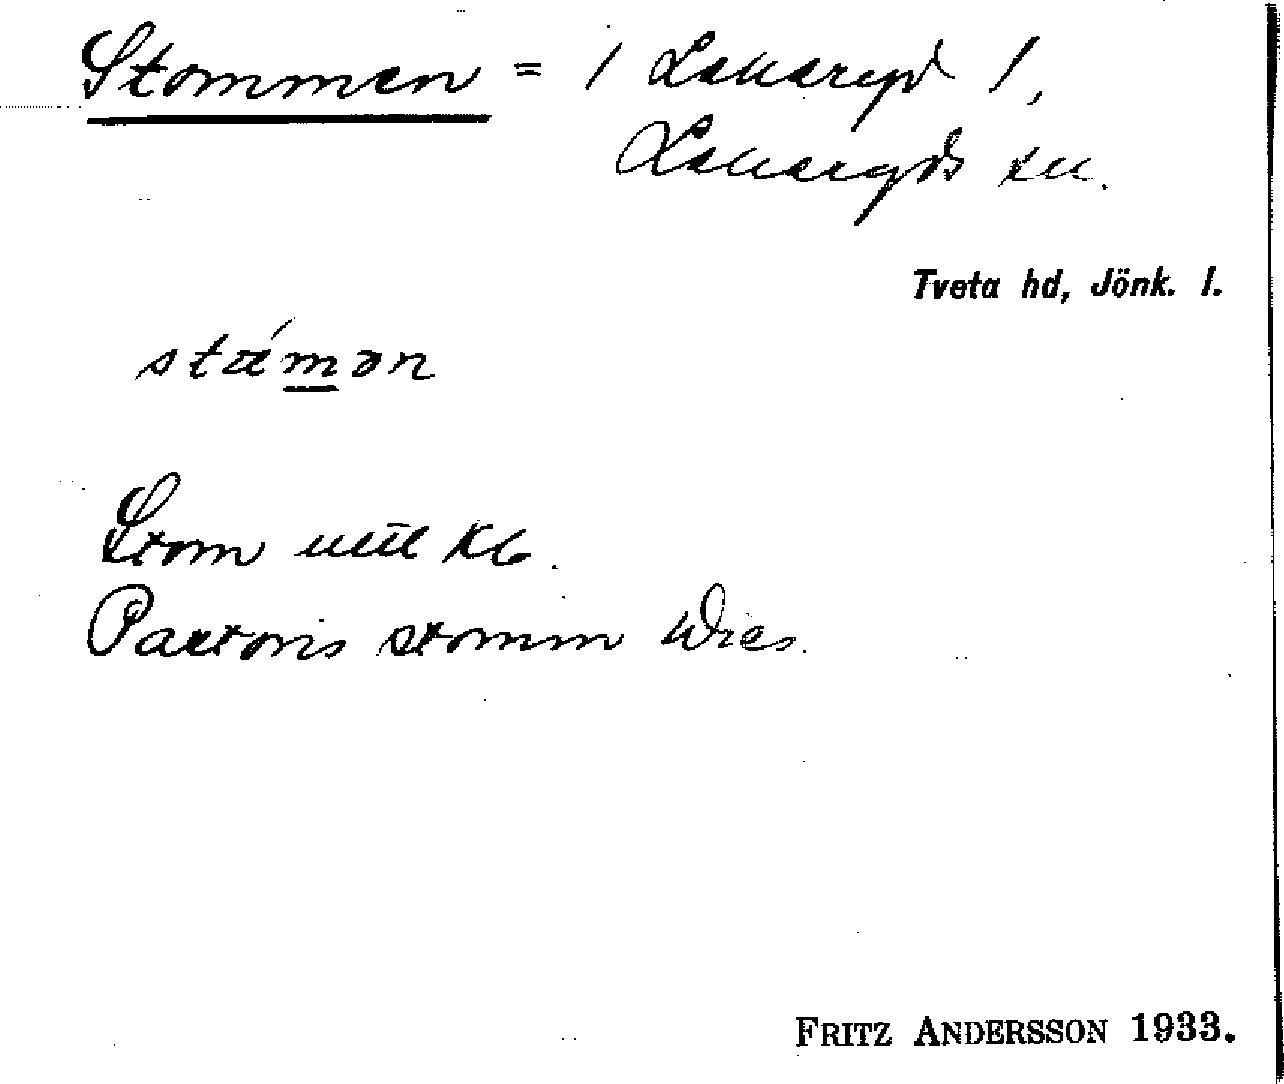 Stommen = 1 Lekaryd 1,
Lekaryds sn.
Tveta hd, Jönk. l.
Stom
Pastoris stomm Wies.
FRITZ ANDERSSON 1933.